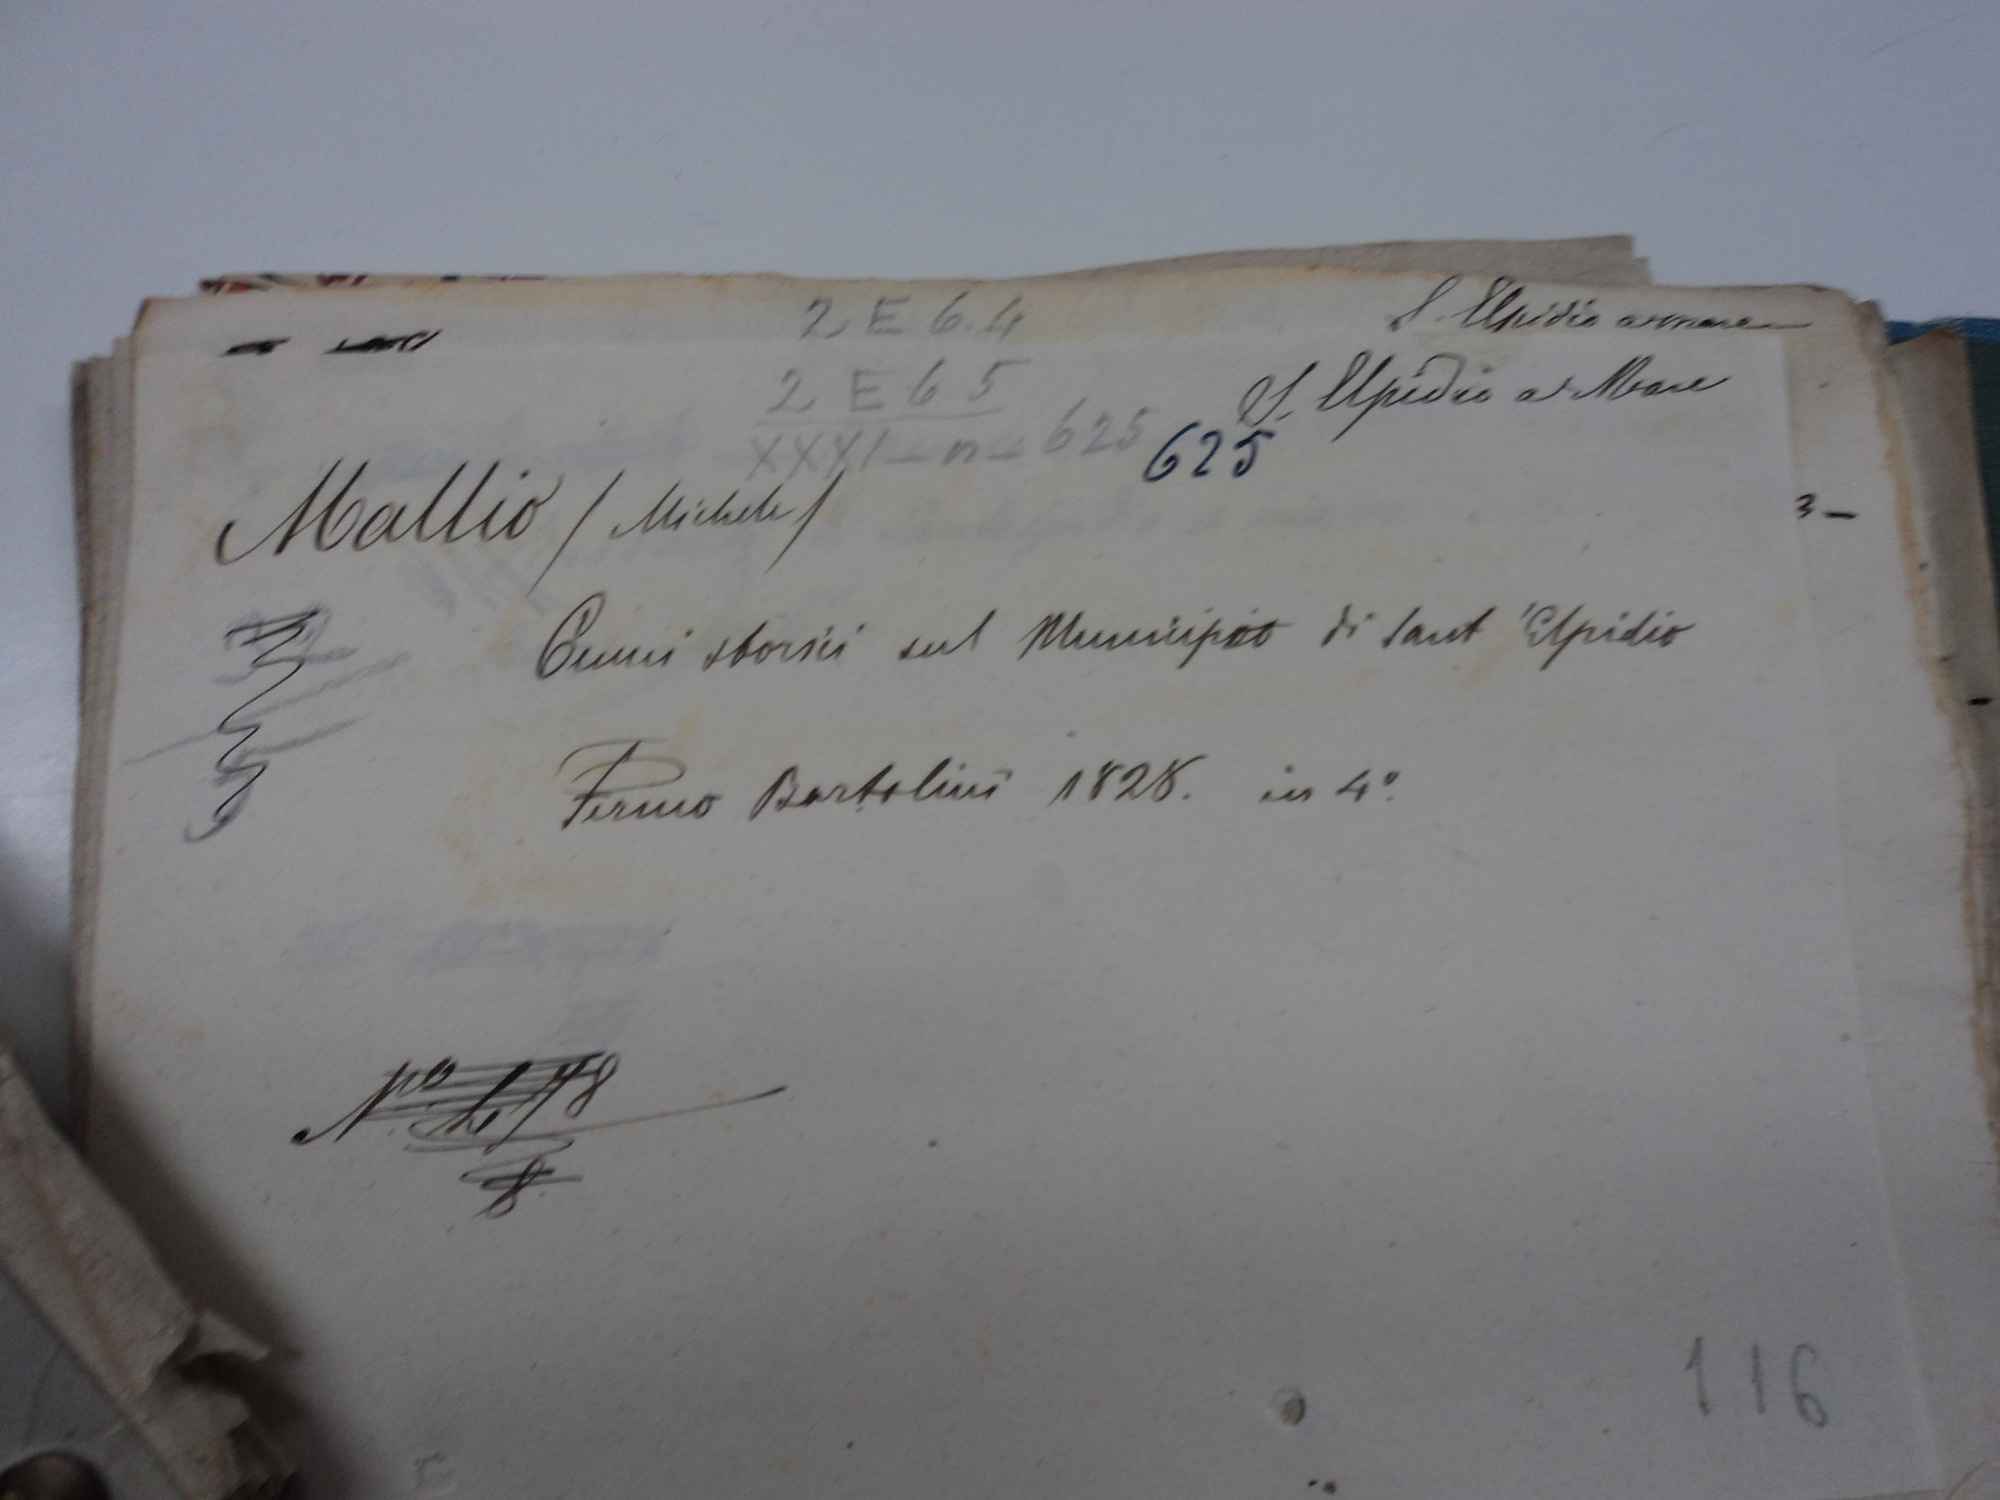 2 E 6.4
S. Elpidio a mare
2 E 6 5
S. Elpidio a Mare
XXXI - n - 625
625
Mallio (Michele)
3 -
Cenni storici sul Municipio di Sant'Elpidio
Fermo Bartolini 1828. in 4°.
No.
8
116